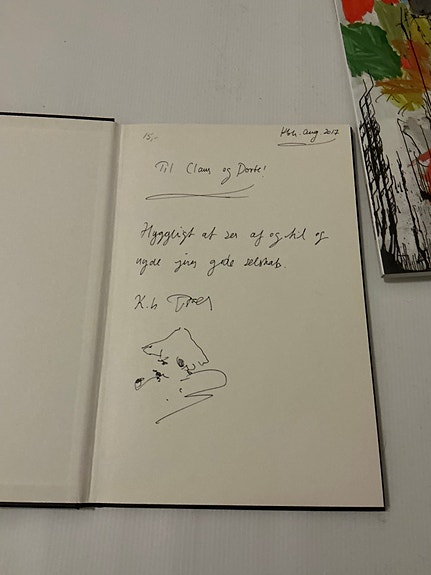 15,-
Kbh. aug 2017
Til Claus og Dorte!
Hyggligt at ses af og til og
nyde jeres gode selskab.
K.h